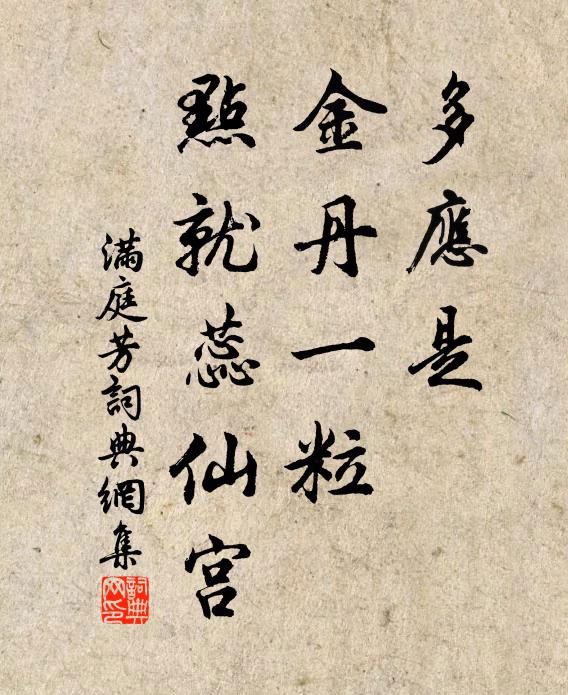 多應是
金丹一粒
點就蕊仙宮
滿庭芳詞典網集
詞典
网印